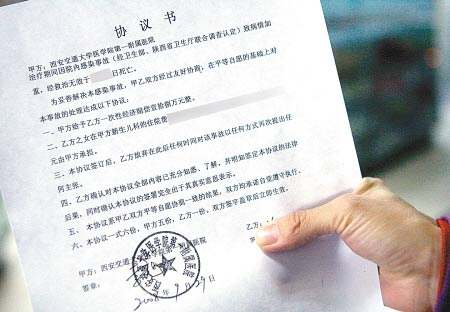 协议书
甲方：西安交通大学医学院第一附属医院
治疗期间因院内感染事故（经卫生部、陕西省卫生厅联合调查认定）致病情加
重，经救治无效于 日死亡。
为妥善解决本感染事故，甲乙双方经过友好协商，在平等自愿的基础上对
本事故的处理达成以下协议：
一、甲方给予乙方一次性经济赔偿壹拾捌万元整。
二、乙方之女在甲方新生儿科的住院费
元由甲方承担。
三、本协议签订后，乙方放弃在此后任何时间对该事故以任何方式再次提出任
何主张。
四、乙方确认对本协议全部内容已充分知悉、了解，并明知签定本协议的法律
后果，同时确认本协议的签署完全出于其真实意思表示。
五、本协议系甲乙双方平等自愿协商一致的结果，双方均承诺自觉遵守执行。
六、本协议一式六份，甲方五份，乙方一份，双方签字盖章后立即生效。
甲方：西安交通 医院 乙方：
签章： 乙方：
2008年9月29